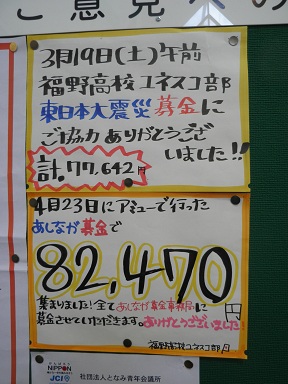 ご意見への
3月19日(土)午前
福野高校ユネスコ部
東日本大震災募金に
ご協力ありがとうござ
いました!!
計.77,642円
4月23日にアミューで行った
あしなが募金で
82,470円
集まりました!全てあしなが募金事務局に
募金させていただきます。ありがとうございました!
福野高校ユネスコ部
NIPPON
JCI
社団法人となみ青年会議所